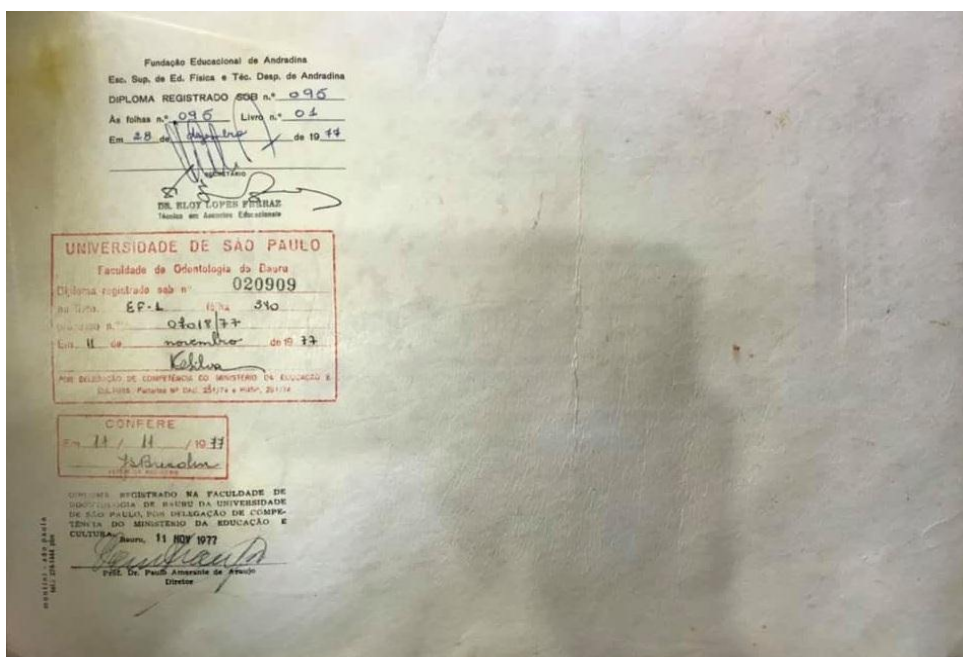 Fundação Educacional de Andradina
Esc. Sup. de Ed. Física e Téc. Desp. de Andradina
DIPLOMA REGISTRADO SOB n.º 096
Às folhas n.º 096 Livro n.º 01
Em 28 de dezembro de 1977
SECRETÁRIO
DR. ELOY LOPES FERRAZ
Técnico em Assuntos Educacionais
UNIVERSIDADE DE SÃO PAULO
Faculdade de Odontologia de Bauru
Diploma registrado sob nº 020909
no livro EF-1 fls. 340
processo n.º 07018/77
Em 11 de novembro de 1977
KSilva
POR DELEGAÇÃO DE COMPETÊNCIA DO MINISTÉRIO DA EDUCAÇÃO E
CULTURA
CONFERE
Em 11 / 11 / 1977
DIPLOMA REGISTRADO NA FACULDADE DE
ODONTOLOGIA DE BAURU DA UNIVERSIDADE
DE SÃO PAULO, POR DELEGAÇÃO DE COMPE-
TÊNCIA DO MINISTÉRIO DA EDUCAÇÃO E
CULTURA. Bauru, 11 NOV 1977
Prof. Dr. Paulo Amarante de Araujo
Diretor
são paulo